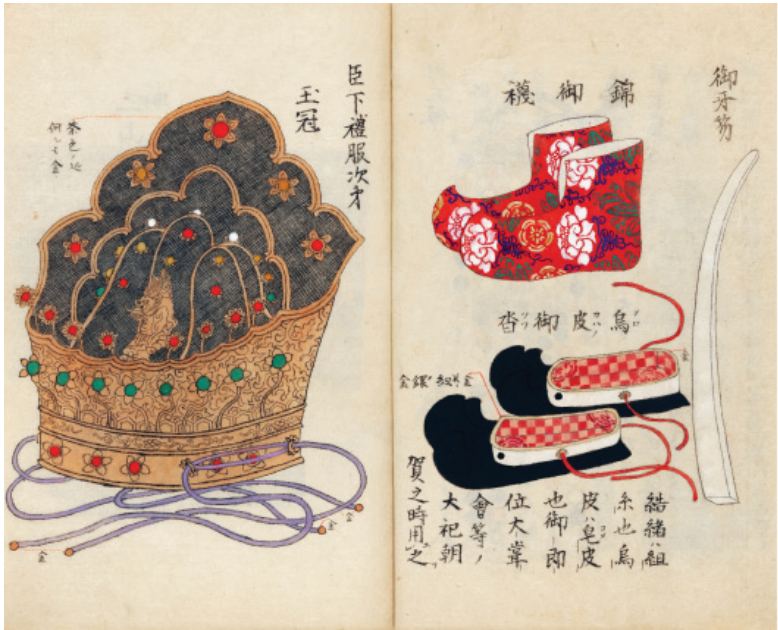 御牙笏
錦御襪
烏皮御沓
金
結緒ハ組
糸也烏
皮ハ皂皮
也御即
位大嘗
會等ノ
大祀朝
賀之時用之
臣下禮服次才
玉冠
茶色ノ
何レモ金
金
金
金